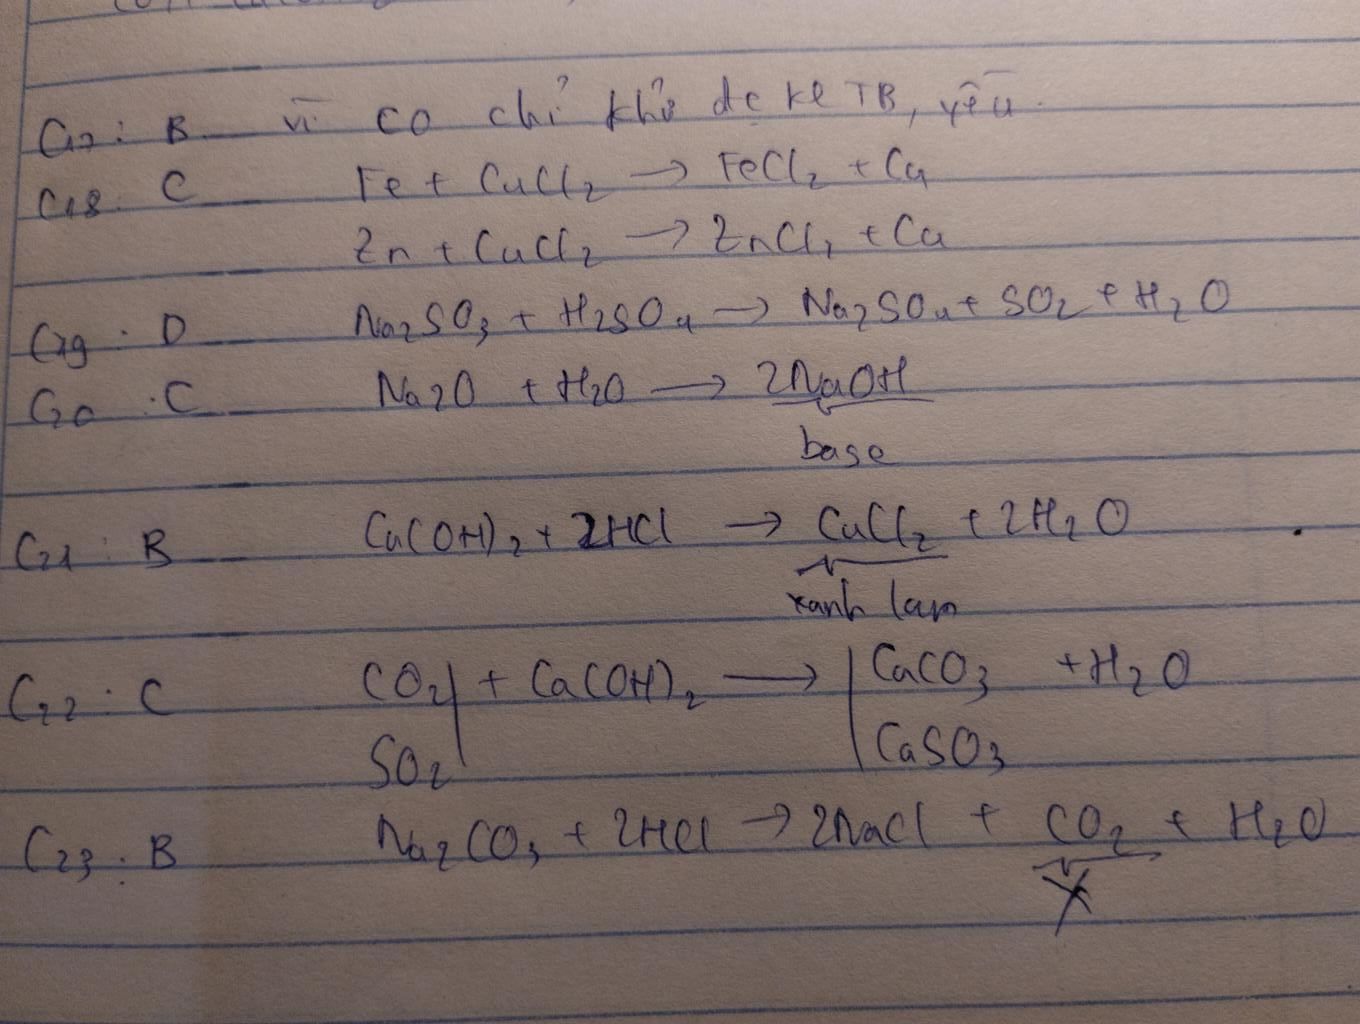 C17: B vì CO chỉ khử đc kl TB, yếu.
C18. C Fe + CuCl2 → FeCl2 + Cu
Zn + CuCl2 → ZnCl2 + Cu
C19. D Na2SO3 + H2SO4 → Na2SO4 + SO2 + H2O
C20. C Na2O + H2O → 2NaOH
base
C21: B Cu(OH)2 + 2HCl → CuCl2 + 2H2O
xanh lam
C22: C CO2 | + Ca(OH)2 → | CaCO3 + H2O
SO2 | CaSO3
C23. B Na2CO3 + 2HCl → 2NaCl + CO2 + H2O
X